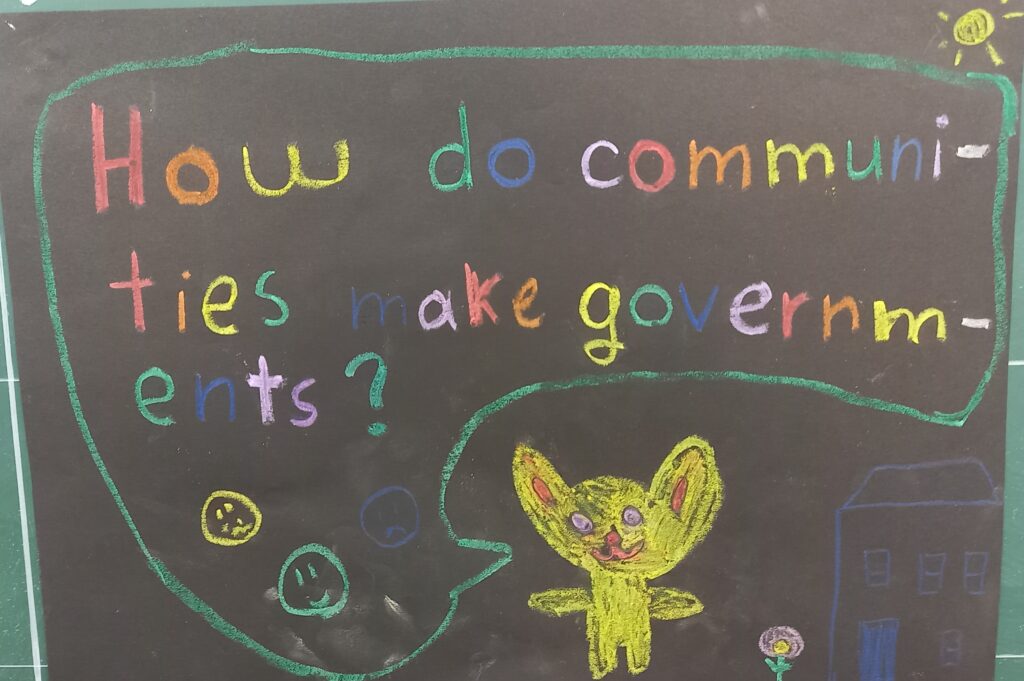 How do communi-
ties make governm-
ents?